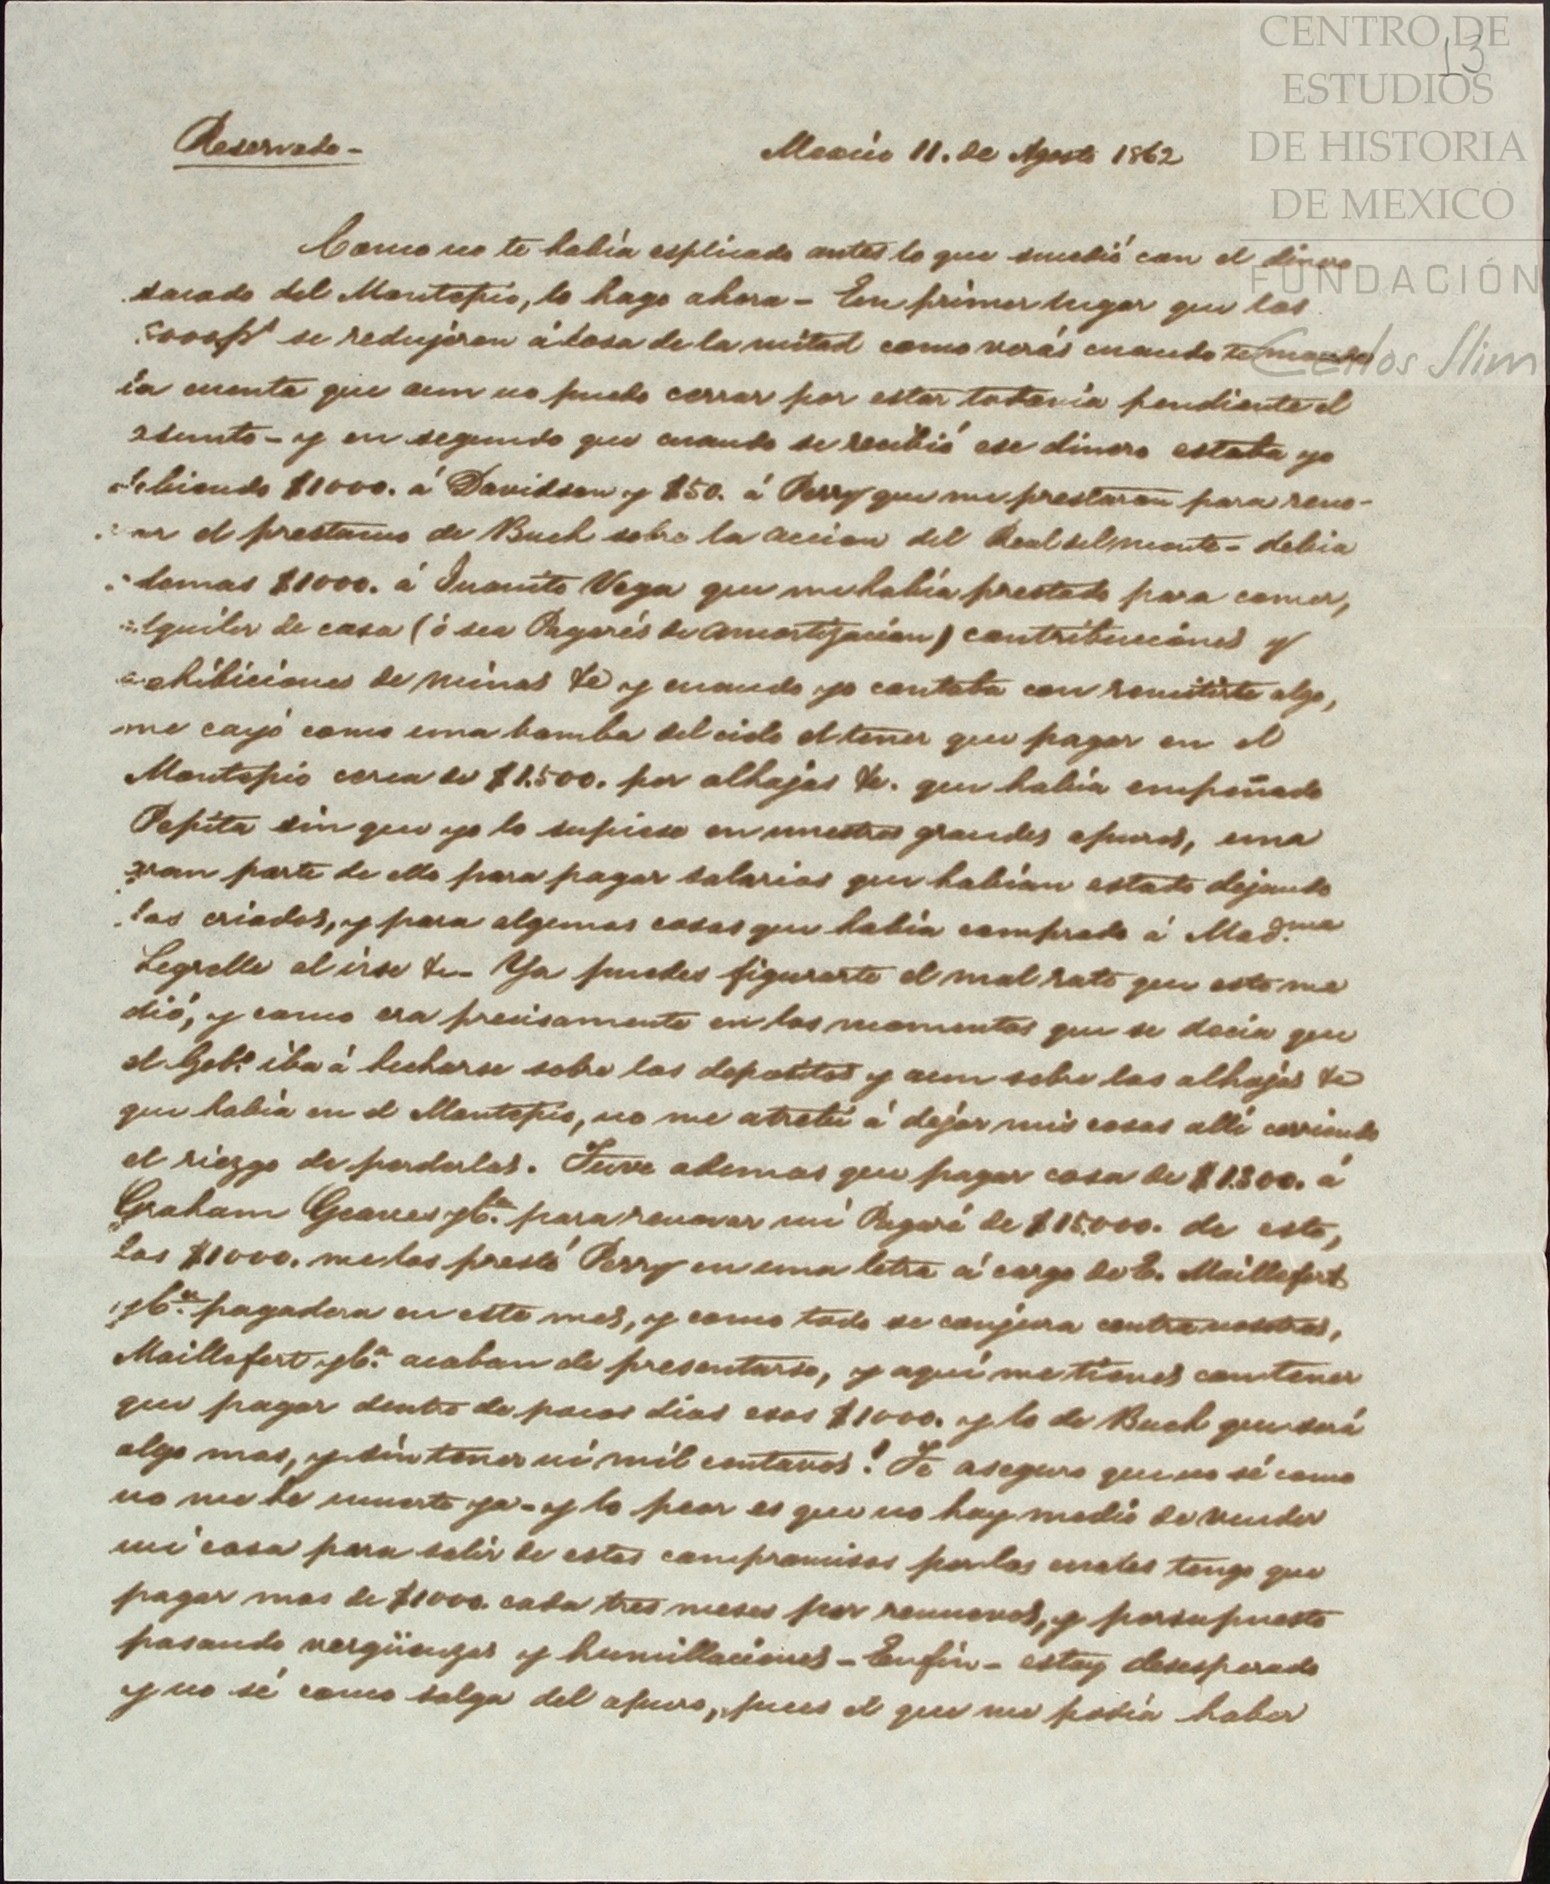 CENTRO DE
ESTUDIOS
DE HISTORIA
DE MEXICO
FUNDACIÓN
Carlos Slim
13
Reservado - Mexico 11. de Agosto 1862
Como no te había esplicado antes lo que sucedió con el dinero
sacado del Montepío, lo hago ahora - En primer lugar que los
se redujeron á cosa de la mitad como verás cuando te mande
la cuenta que aun no puedo cerrar por estar todavía pendiente el
asunto - y en segundo que cuando se recibió ese dinero estaba yo
debiendo $1000. á Davidson y $50. á Perry que me prestaron para reno-
var el prestamo de Buch sobre la accion del Real del monte - debia
ademas $1000. á Juanito Vega que me había prestado para comer,
alquiler de casa (ó sea Pagarés de amortizacion) contribuciónes y
exhibiciones de minas &a y cuando yo contaba con remitirte algo,
me cayó como una bomba del cielo el tener que pagar en el
Montepío cerca de $1.500. por alhajas &a. que había empeñado
Pepita sin que yo lo supiese en nuestros grandes apuros, una
gran parte de ello para pagar salarios que habían estado dejando
los criados, y para algunas cosas que había comprado á Mad.me
Legrelle al irse &a - Ya puedes figurarte el mal rato que esto me
dió, y como era precisamente en los momentos que se decia que
el Gob.o iba á hecharse sobre los depositos y aun sobre las alhajas &a
que había en el Montepío, no me atreví á dejar mis cosas allí corriendo
el riezgo de perderlas. Tuve ademas que pagar cosa de $1.300. á
Graham Geaves y C.a para renovar mi Pagaré de $15.000. de esto,
los $1000. me los prestó Perry en una letra á cargo de E. Maillefert
y C.a pagadera en este mes, y como todo se conjura contra nosotros,
Maillefert y C.a acaban de presentarse, y aquí me tienes con tener
que pagar dentro de pocos dias esos $1000. y lo de Buch que será
algo mas, y sin tener ni mil centavos! Te aseguro que no sé como
no me he muerto ya - y lo peor es que no hay medio de vender
mi casa para salir de estos compromisos por los cuales tengo que
pagar mas de $1000. cada tres meses por renuevos, y por supuesto
pasando vergüenzas y humillaciones - En fin - estoy desesperado
y no sé como salga del apuro, pues el que me podía haber